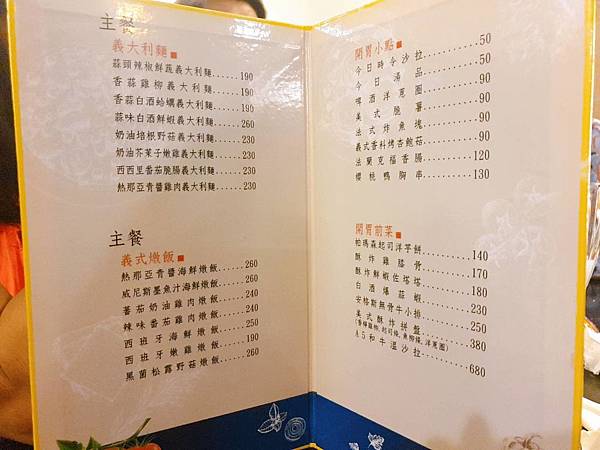 主餐
義大利麵
蒜頭辣椒鮮蔬義大利麵......190
香蒜雞柳義大利麵......190
香蒜白酒蛤蠣義大利麵......195
蒜味白酒鮮蝦義大利麵......260
奶油培根野菇義大利麵......230
奶油芥茉子嫩雞義大利麵......230
西西里番茄脆腸義大利麵......230
熱那亞青醬雞肉義大利麵......230
主餐
義式燉飯
熱那亞青醬海鮮燉飯......260
威尼斯墨魚汁海鮮燉飯......260
蕃茄奶油雞肉燉飯......240
辣味番茄雞肉燉飯......240
西班牙海鮮燉飯......250
西班牙嫩雞燉飯......190
黑菌松露野菇燉飯......260
開胃小點
今日時令沙拉..........50
今日湯品..........50
啤酒洋蔥圈..........90
美式脆薯..........90
法式炸魚塊..........90
義式香料烤杏鮑菇..........90
法蘭克福香腸..........120
櫻桃鴨胸串..........130
開胃前菜
帕瑪森起司洋芋餅..........140
酥炸雞膝骨..........170
酥炸鮮蝦佐塔塔..........180
白酒爆菇蝦..........230
安格斯無骨牛小排..........250
美式酥炸拼盤..........380
A5和牛溫沙拉..........680